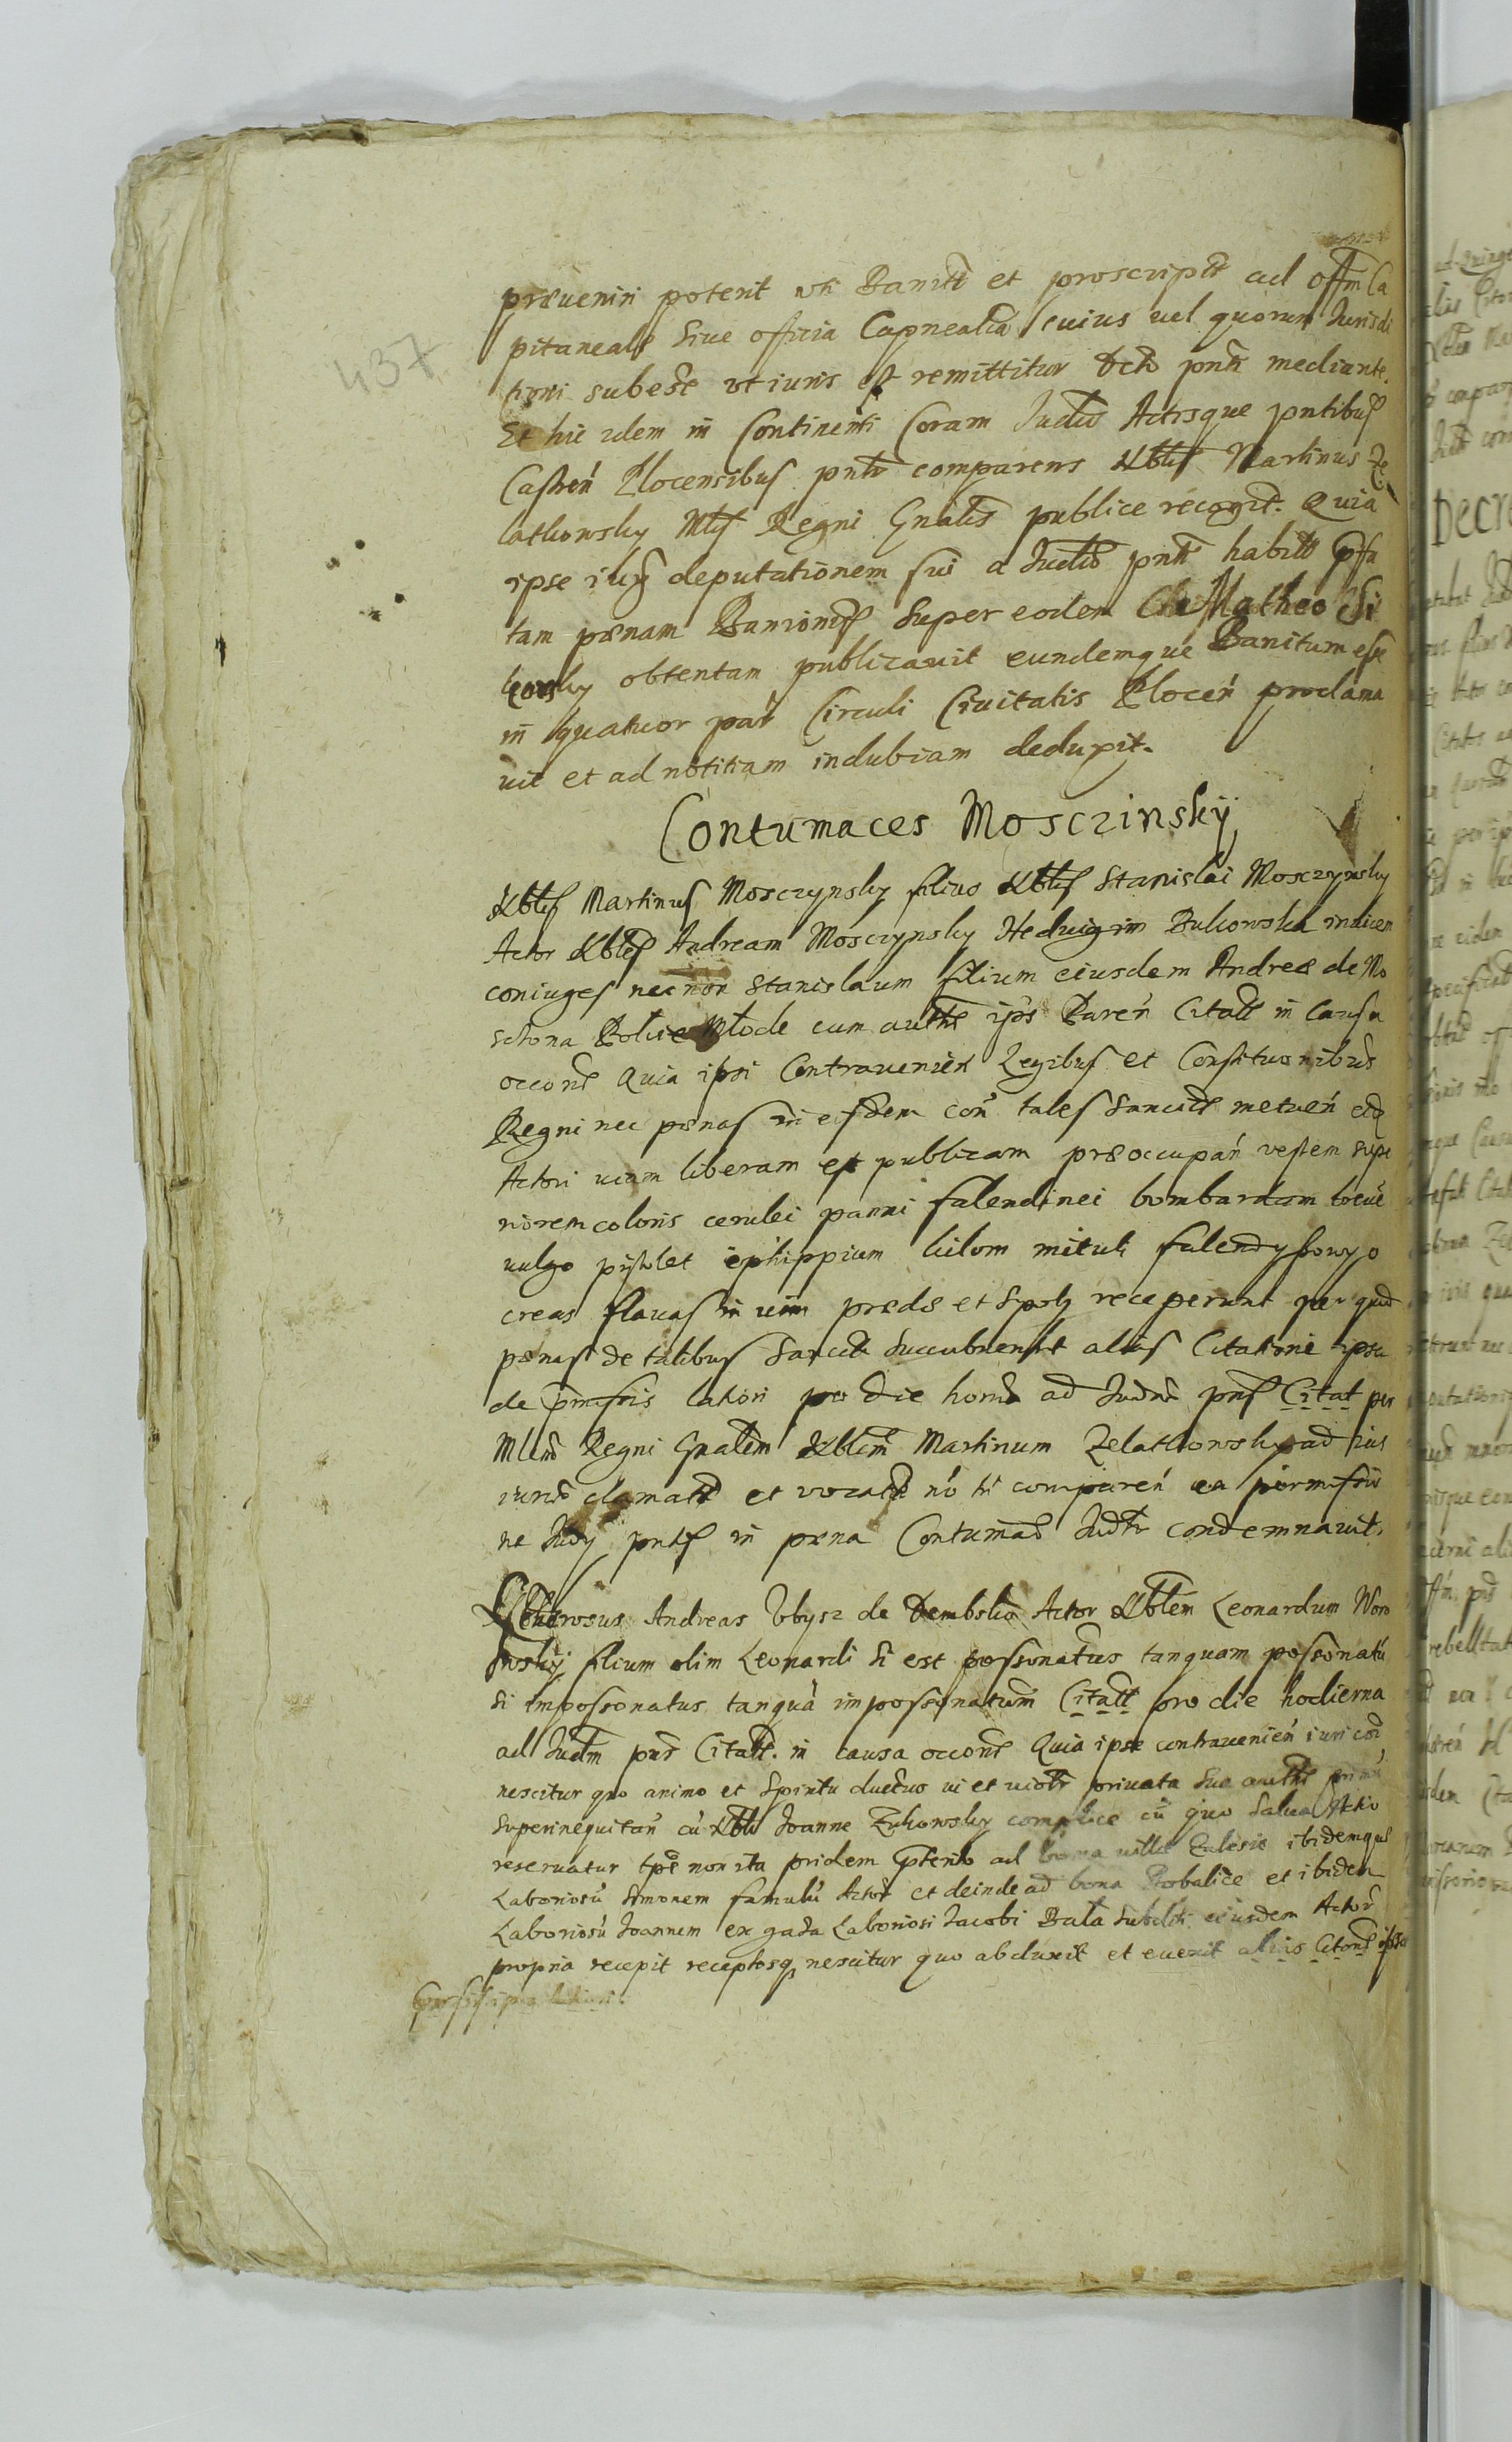 437
præueniri poterit uti Banitt et proscriptt ad offm Ca
pitaneale siue officia Capnealia cuius uel quorum Jurisdi
ctioni subesse ut iuris est remittitur dcto pnti mediante.
Et hic idem in Continenti Coram Judio Actisque pntibus
Castren Plocensibus pntr comparens Nblis Martinus Ze
lathowsky Mlis Regni Gnalis publice recogt. Quia
ipse iux deputationem sui a Judio pnti habitt pfa
tam pænam Banionis super eodem Matheo Si
kowsky obtentam publicauit eundemque Banitum esse
in quatuor par Circuli Ciuitatis Plocen proclama
uit et ad notitiam indubiam deduxit.
Contumaces Mosczinskÿ
Nblis Martinus Mosczynsky filius Nblis Stanislai Mosczynsky
Actor Nbles Andream Mosczynsky Hedvigim Bukowska inuicem
coniuges necnon Stanislaum filium eiusdem Andreæ de Mo
sczona Mlode cum authte ipis Paren Citatt in Causa
occone Quia ipsi Contrauenien Legibus et Constituonibus
Regni nec pænas in eisdem con tales sancitt metuen eid
Actori uiam liberam et publicam præoccupan vestem supe
riorem coloris cerulei panni falendinei bombardam breue
uulgo pistolet ephippium kilom falendyssowy o
creas flauas in uim prædæ et spoly receperunt per quod
pænas de talibus sancitt succubuerunt alias Citatione ipsa
de præmissis latiori pro die horna ad Judm pns Citat per
Mlem Regni Gnalem Nblem Martinum Zelathowsky ad ius
iuris clamatt et vocatt no ti comparen ea permissio
ne Judy pntis in pæna Contumaci Judtr condemnauit.
Generosus Andreas Ubysz de Dembsko Actor Nblem Leonardum Woro
wskÿ filium olim Leonardi si est possionatus tanquam possionatu
si impossionatus tanqua impossionatum Citatt pro die hodierna
ad Judm pns Citatt. in causa occone Quia ipse contrauenien iuri coi
nescitur quo animo et spiritu ductus ui et uiolr priuata sua authte
superinequitan cu Nbli Joanne Zukowsky complice cu quo salua Actio
reseruatur tpe non ita pridem pterito ad bona uillæ ibidemque
Laboriosu Simonem famulu Actor et deinde ad bona Probalice et ibidem
Laboriosu Joannem ex gada Laboriosi Jacobi Bala subditi eiusdem Actor
propria recepit receptosq nescitur quo abduxit et euexit alias Citone ipsa